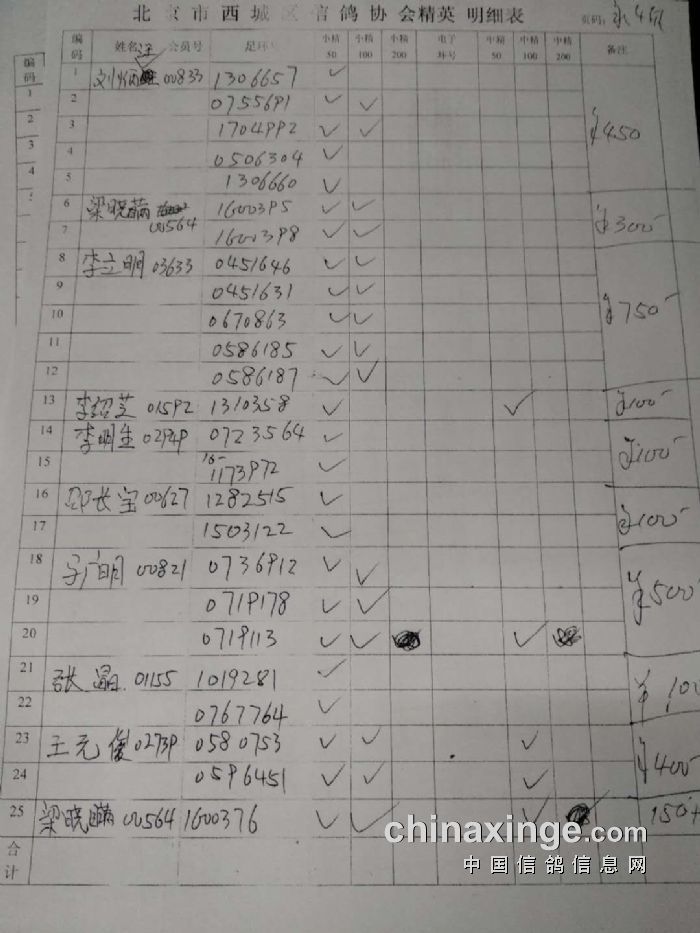 北京市西城区信鸽协会精英 明细表 页码:
编码 姓名 会员号 足环 小精50 小精100 小精200 电子环号 中精50 中精100 中精200 备注
编码
1 00833 1306657 ✓
2 0755691 ✓ ✓
3 1704992 ✓ ✓ ¥450
4 0506304 ✓
5 1306660 ✓
6 梁晓 00564 1600395 ✓ ✓
7 1600398 ✓ ✓ ¥300-
8 李立明 03633 0451646 ✓ ✓
9 0451631 ✓ ✓
10 0670863 ✓ ✓ ¥750-
11 0586185 ✓ ✓
12 0586187 ✓ ✓
13 李绍芝 01592 1310358 ✓ ✓ ¥100-
14 李明生 02949 0723564 ✓
15 1173972 ✓ ¥100-
16 邵长宝 00627 1282515 ✓
17 1503122 ✓ ¥100-
18 于广明 00821 0736912 ✓ ✓
19 0719178 ✓ ✓ ¥500-
20 0719113 ✓ ✓ ✓
21 张晶 01155 1019281 ✓
22 0767764 ✓ ¥100
23 王元俊 02739 0580753 ✓ ✓ ✓
24 0596451 ✓ ✓ ✓ ¥400-
25 梁晓 00564 1600376 ✓ ✓ ✓ 150
合计
chinaxinge.com
中国信鸽信息网